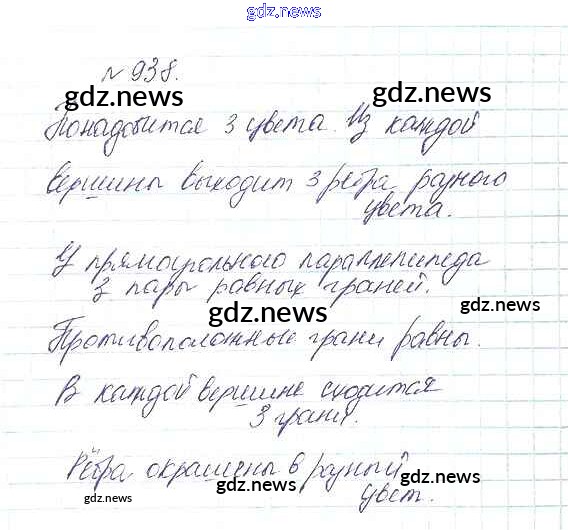 gdz.news
№ 938.
gdz.news
gdz.news
Понадобится 3 цвета. Из каждой
вершины выходит 3 ребра разного
цвета.
У прямоугольного параллепипеда
3 пары равных граней.
gdz.news
gdz.news
Противоположные грани равны.
В каждой вершине сходится
3 грани.
Рёбра окрашены в разный
цвет.
gdz.news
gdz.news
gdz.news